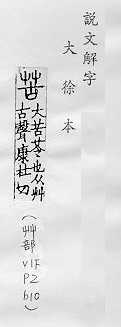 說文解字
大徐本
苦 大苦苓也从艸
古聲康杜切
(艸部
V1F
P2
b10)